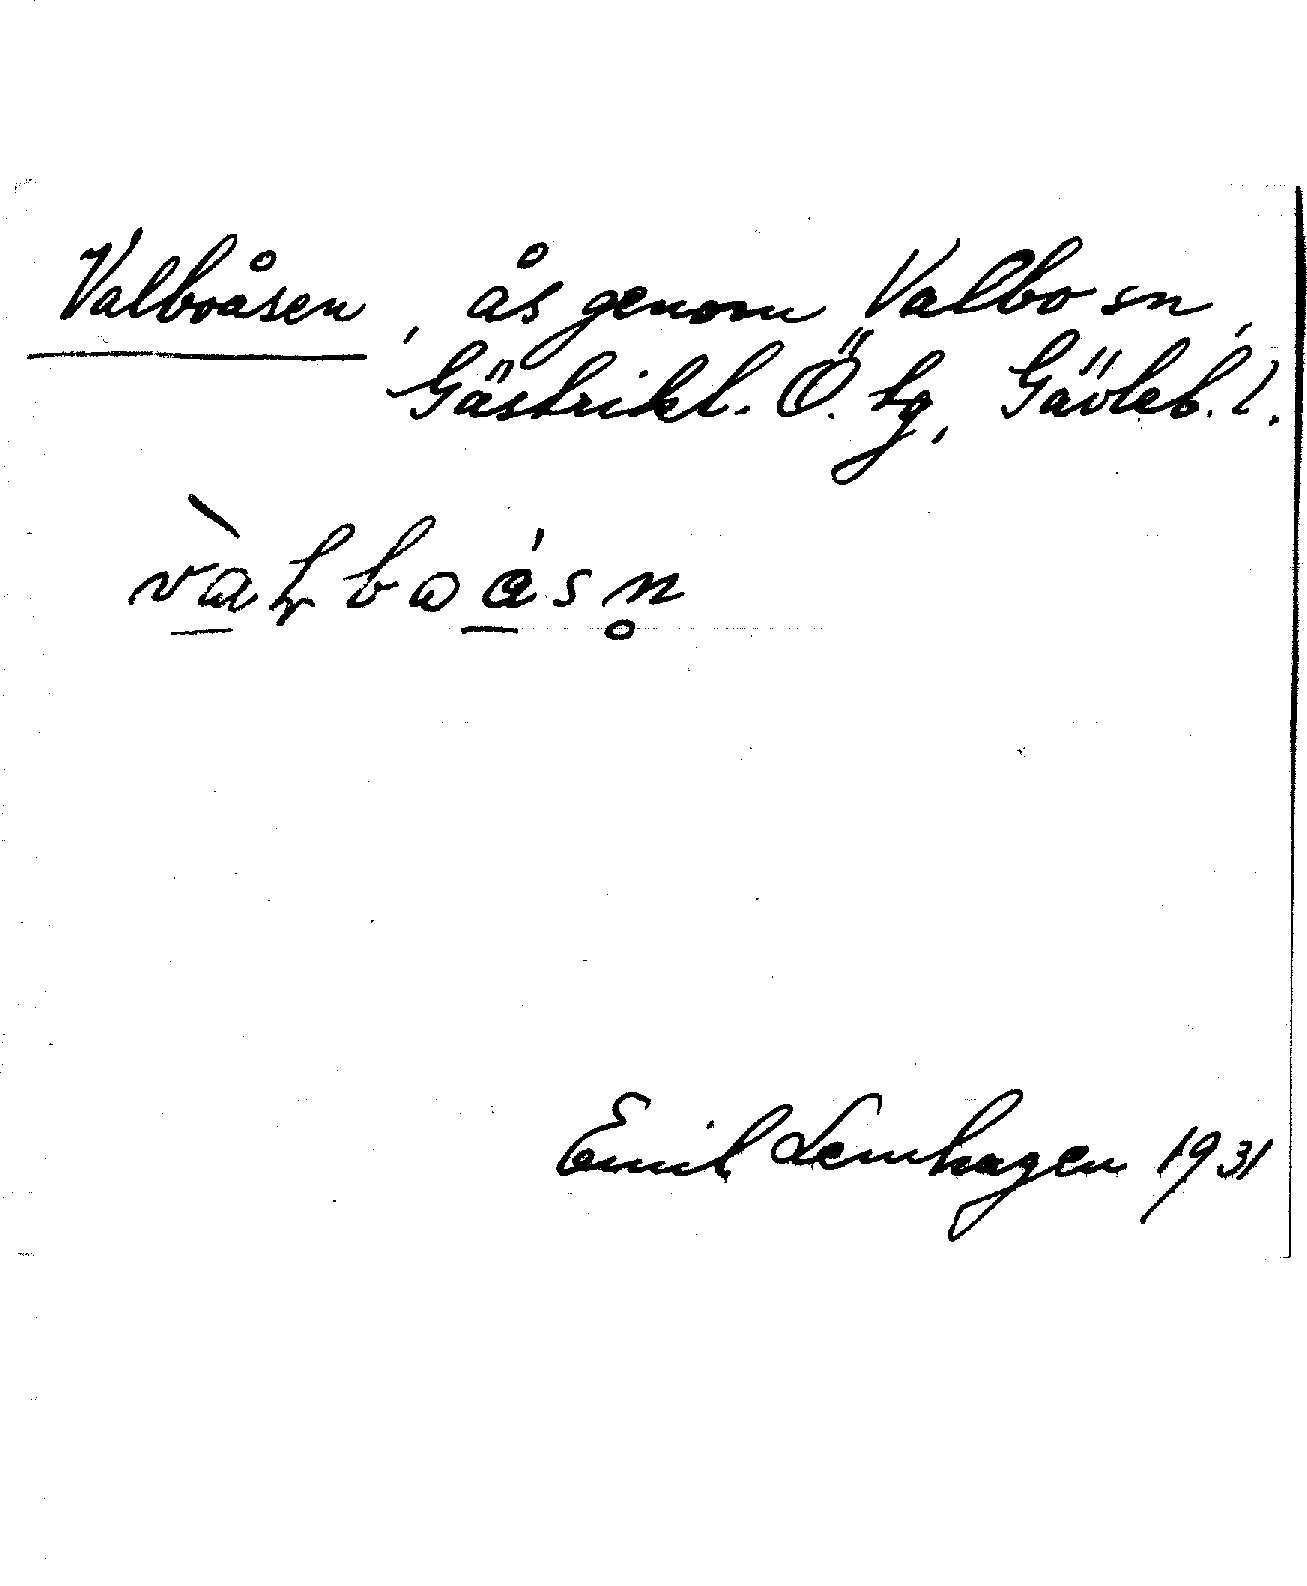 Valboåsen, ås genom Valbo sn,
Gästrikl. Ö. tg, Gävleb. l.
Emil Lennhagen 1931